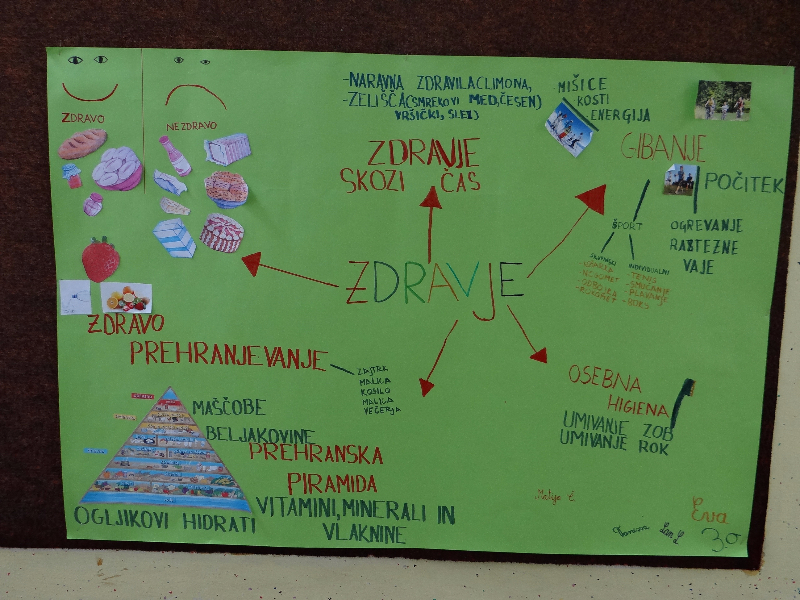 ZDRAVO
NEZDRAVO
-NARAVNA ZDRAVILA(LIMONA,
-ZELIŠČA(SMREKOVI MED,ČESEN)
VRŠIČKI, SLEZ)
ZDRAVJE
SKOZI ČAS
MIŠICE
KOSTI
ENERGIJA
GIBANJE
POČITEK
ŠPORT
OGREVANJE
RAZTEZNE
VAJE
INDIVIDUALNI
-TENIS
-SMUČANJE
-PLAVANJE
ZDRAVJE
ZDRAVO
PREHRANJEVANJE
ZAJTRK
MALICA
KOSILO
MALICA
VEČERJA
OSEBNA
HIGIENA
UMIVANJE ZOB
UMIVANJE ROK
MAŠČOBE
BELJAKOVINE
PREHRANSKA
PIRAMIDA
OGLJIKOVI HIDRATI
VITAMINI,MINERALI IN
VLAKNINE
Matija Č.
Eva